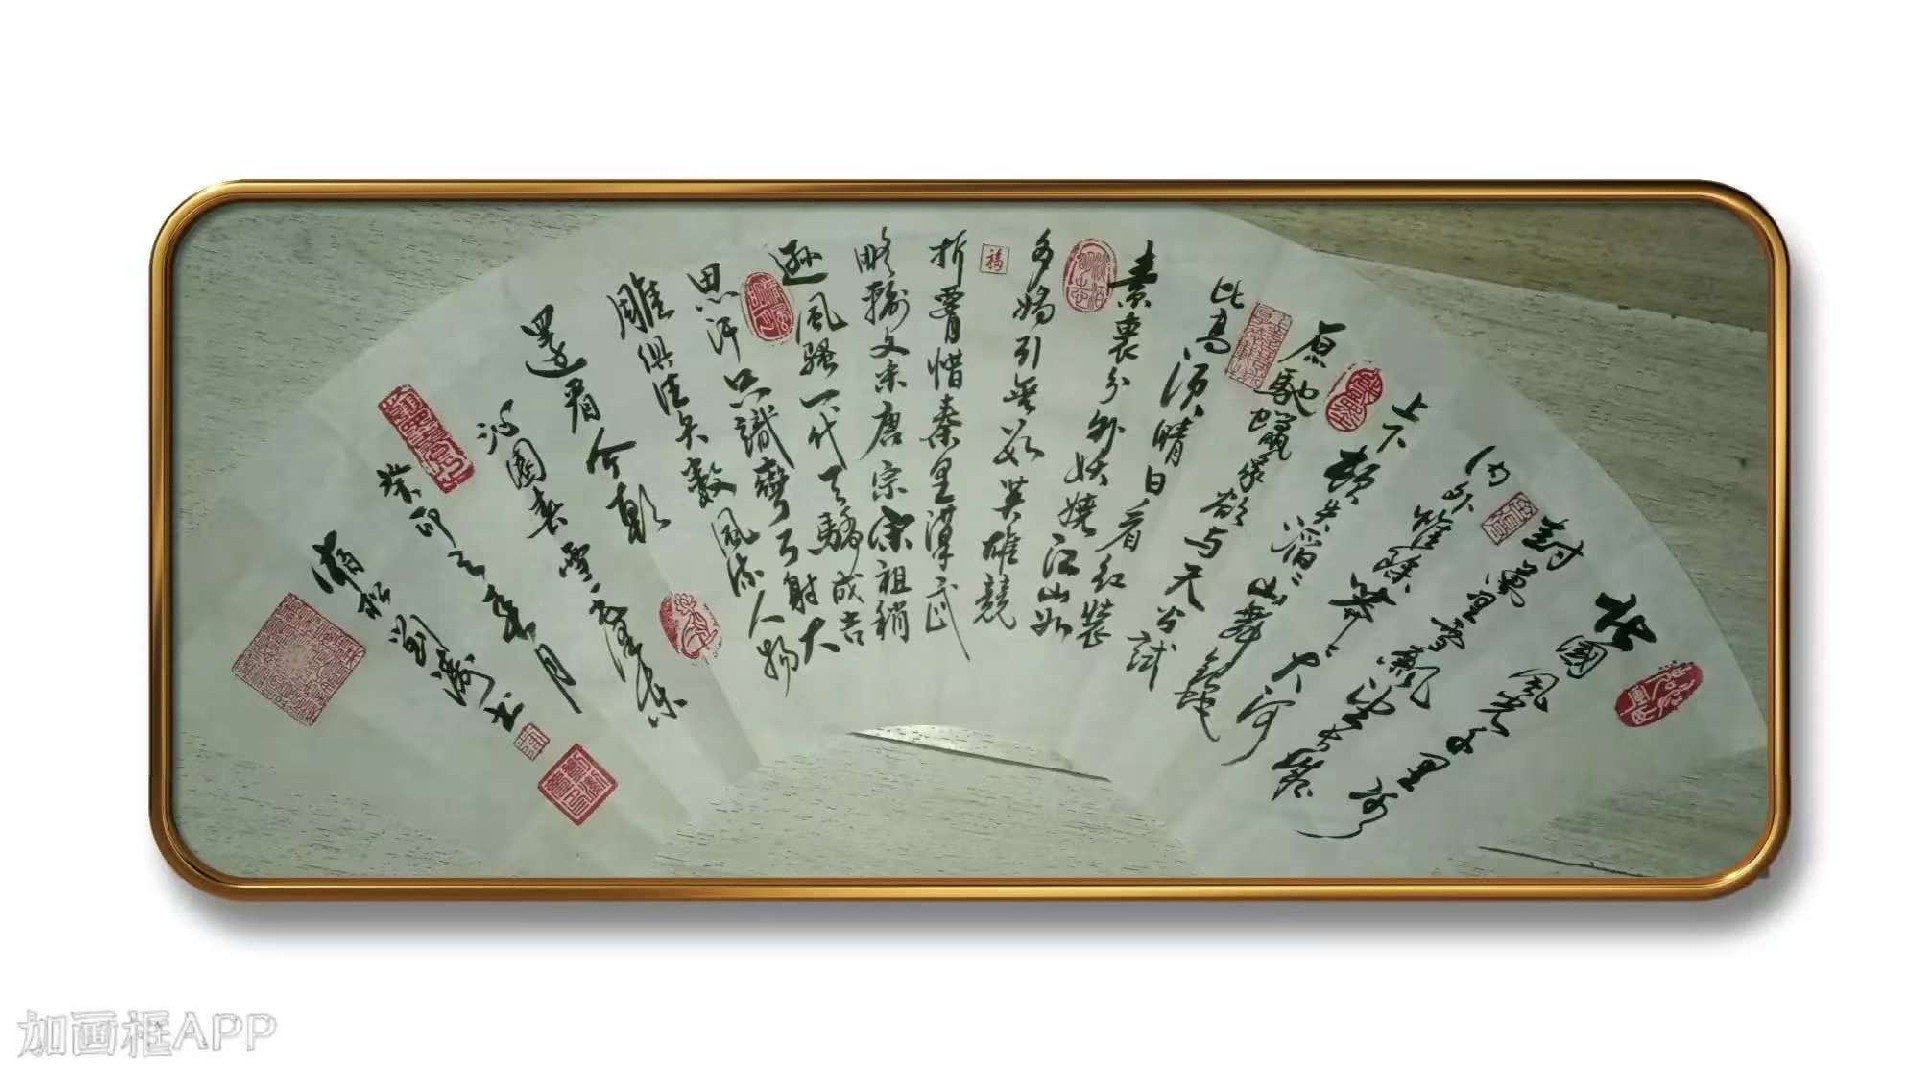 北國風光千里冰
封萬里雪飄望長城
内外惟餘莽莽大河
上下頓失滔滔山舞銀
原馳蠟象欲与天公試
比高須晴日看紅裝
素裹分外妖嬈江山如
多嬌引無數英雄競
福
折腰惜秦皇漢武
略輸文采唐宗宋祖稍
遜風騷一代天驕成吉
思汗只識彎弓射大
雕俱往矣數風流人物
還看今朝
沁園春雪毛澤東
癸卯之春月
劉濤书
加画框APP